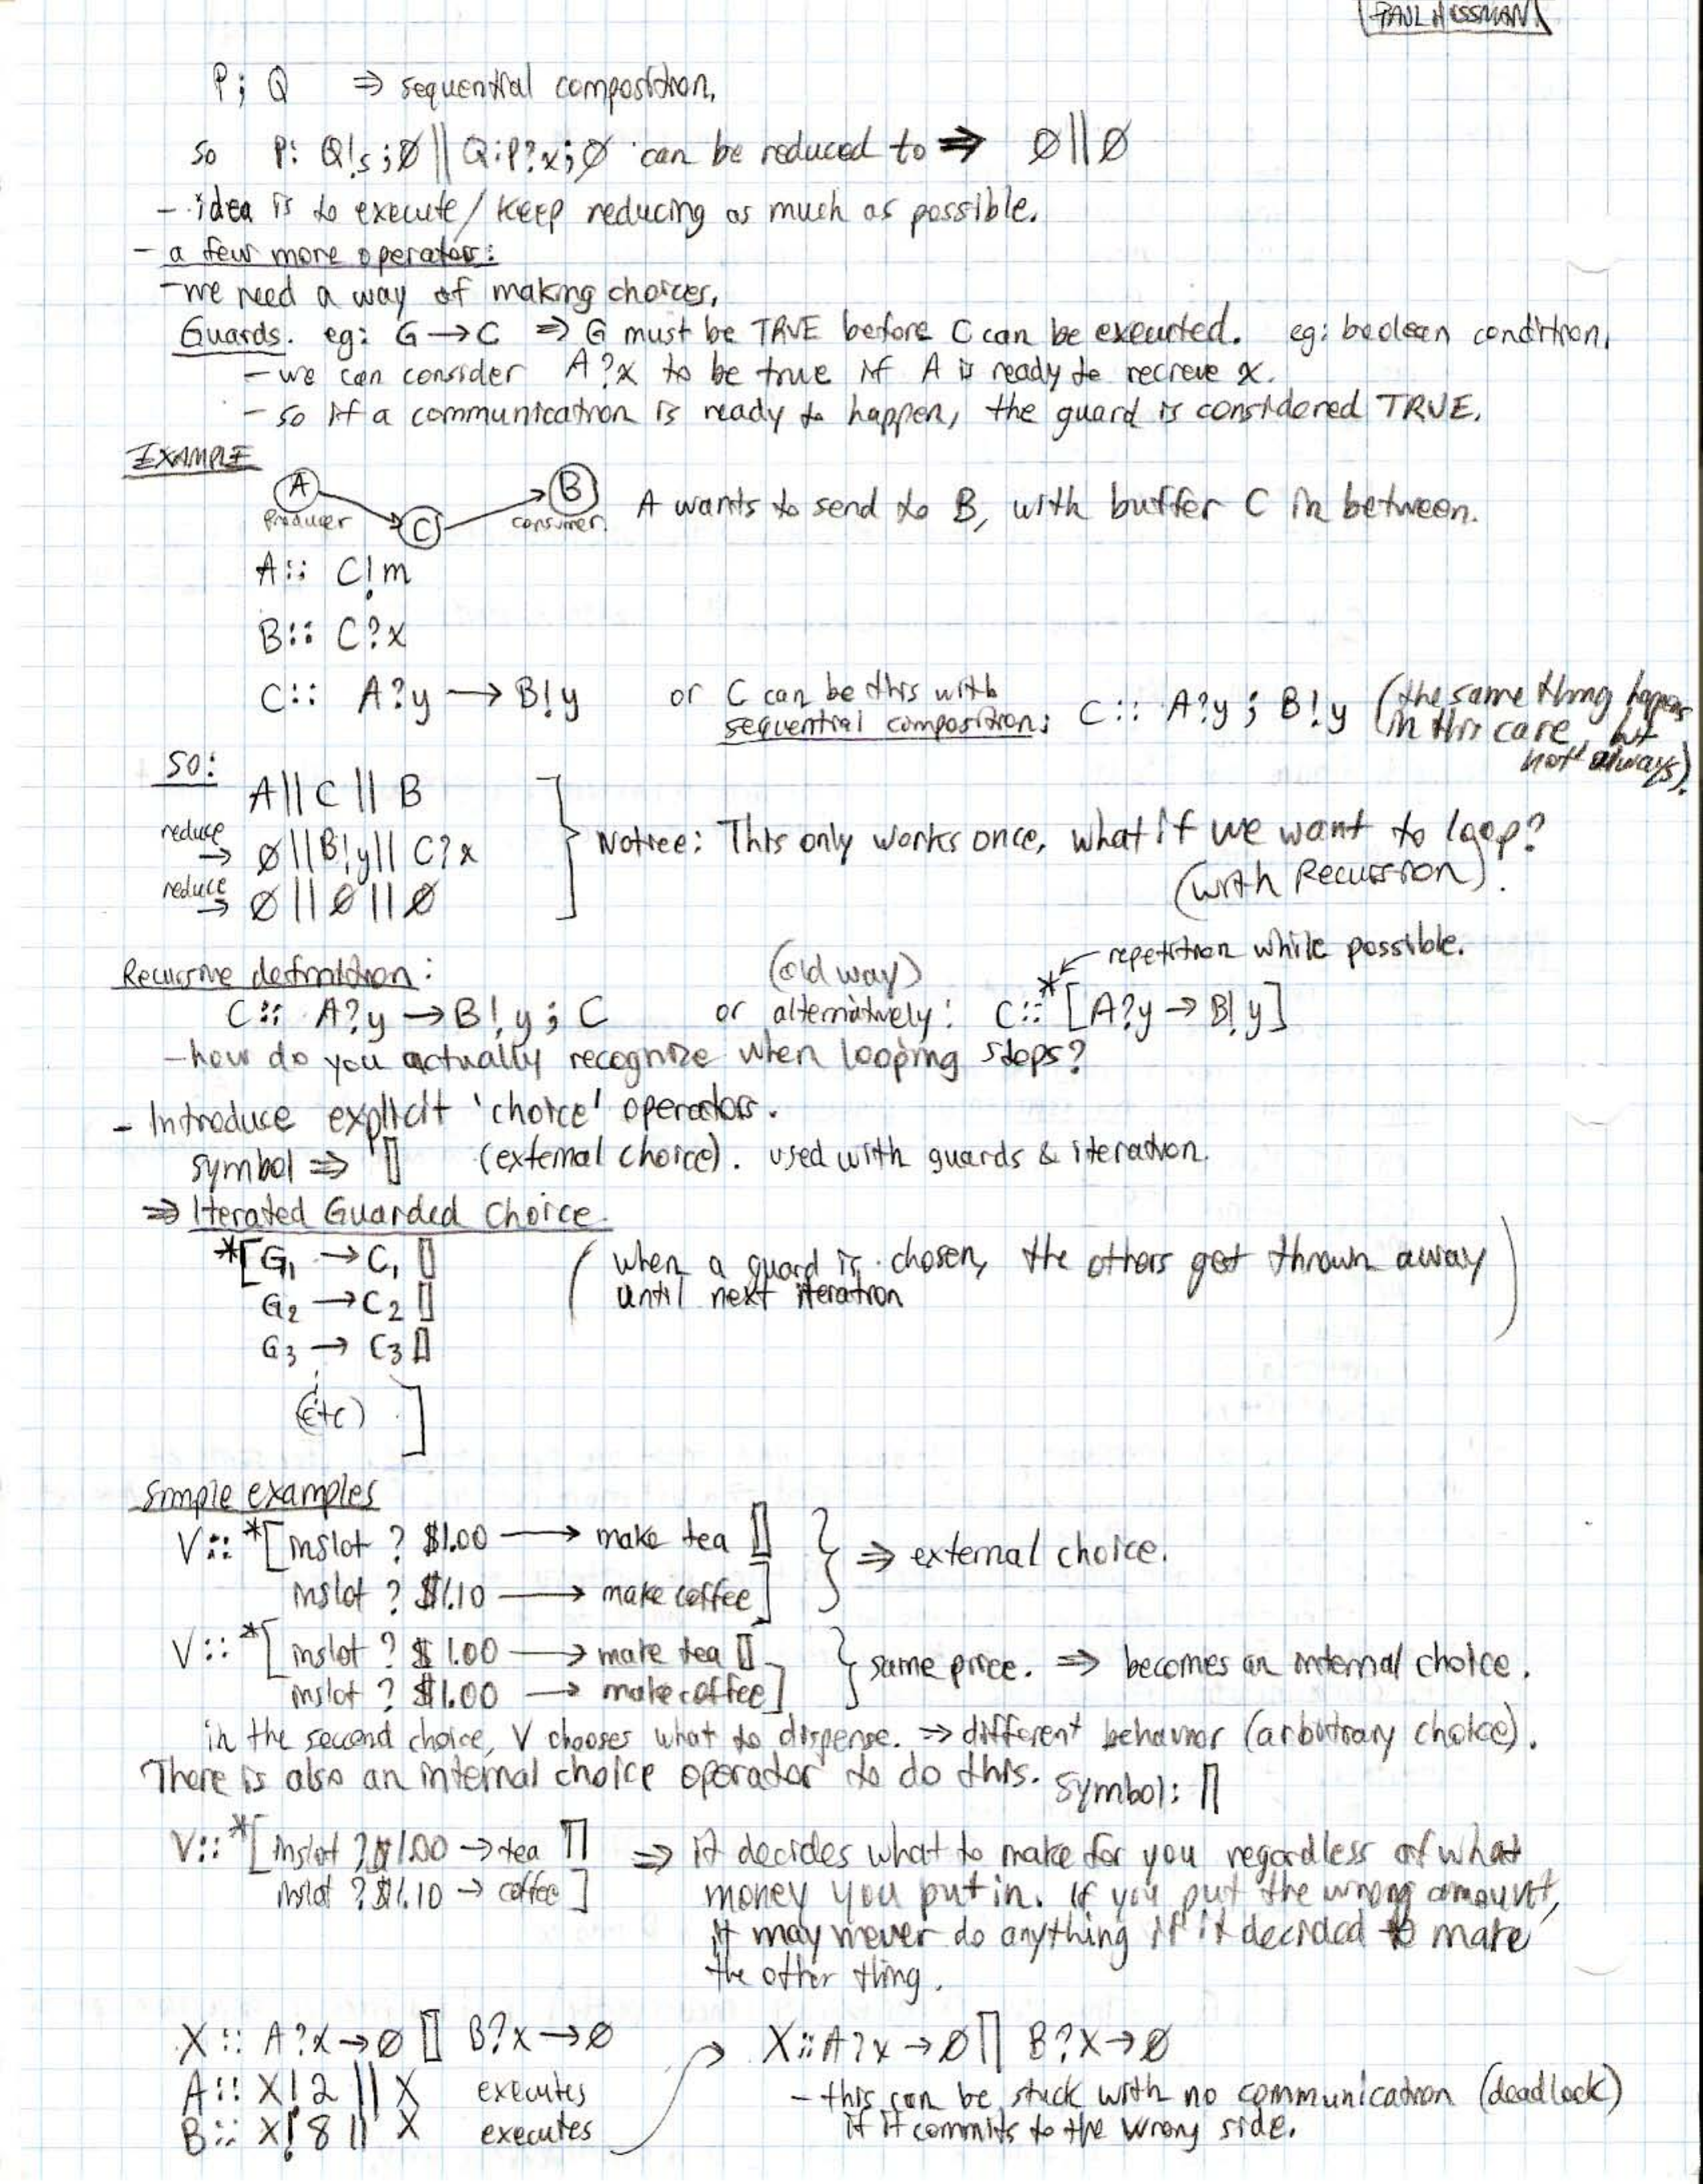 PAUL HUSSMAN
P; Q ⇒ sequential composition.
so P: Q!s;∅ || Q:P?x;∅ can be reduced to ⇒ ∅||∅
- idea is to execute/keep reducing as much as possible.
- a few more operators:
- we need a way of making choices,
Guards. eg: G→C ⇒ G must be TRUE before C can be executed. eg: boolean condition.
- we can consider A?x to be true if A is ready to recieve x.
- so if a communication is ready to happen, the guard is considered TRUE.
EXAMPLE
A producer C B consumer. A wants to send to B, with buffer C in between.
A:: C!m
B:: C?x
C:: A?y → B!y or C can be this with sequential composition: C:: A?y ; B!y (the same thing happens in this case, but not always).
so:
A || C || B
reduce → ∅||B!y|| C?x Notice: This only works once, what if we want to loop?
(with Recursion).
reduce → ∅||∅||∅
Recursive definition: (old way) * ← repetition while possible.
C:: A?y → B!y ; C or alternatively: C::*[A?y → B!y]
- how do you actually recognize when looping stops?
- Introduce explicit 'choice' operators.
symbol ⇒ ▯ (external choice). used with guards & iteration.
⇒ Iterated Guarded Choice.
*[G₁ → C₁ ▯ (when a guard is chosen, the others get thrown away
G₂ → C₂ ▯ until next iteration)
G₃ → C₃ ▯
(etc) ]
simple examples
V:: *[inslot ? $1.00 → make tea ▯ } ⇒ external choice.
inslot ? $1.10 → make coffee]
V:: *[inslot ? $1.00 → make tea ▯ } same price. ⇒ becomes an internal choice.
inslot ? $1.00 → make coffee]
in the second choice, V chooses what to dispense. ⇒ different behavior (arbitrary choice).
There is also an internal choice operator to do this. Symbol: ∏
V:: *[inslot ?$1.00 → tea ∏ ⇒ it decides what to make for you regardless of what
inslot ?$1.10 → coffee] money you put in. If you put the wrong amount,
it may never do anything if it decided to make
the other thing.
X:: A?x→∅ ▯ B?x→∅ X::A?x→∅ ∏ B?x→∅
A:: X!2 || X executes - this can be stuck with no communication (deadlock)
B:: X!8 || X executes if it commits to the wrong side.